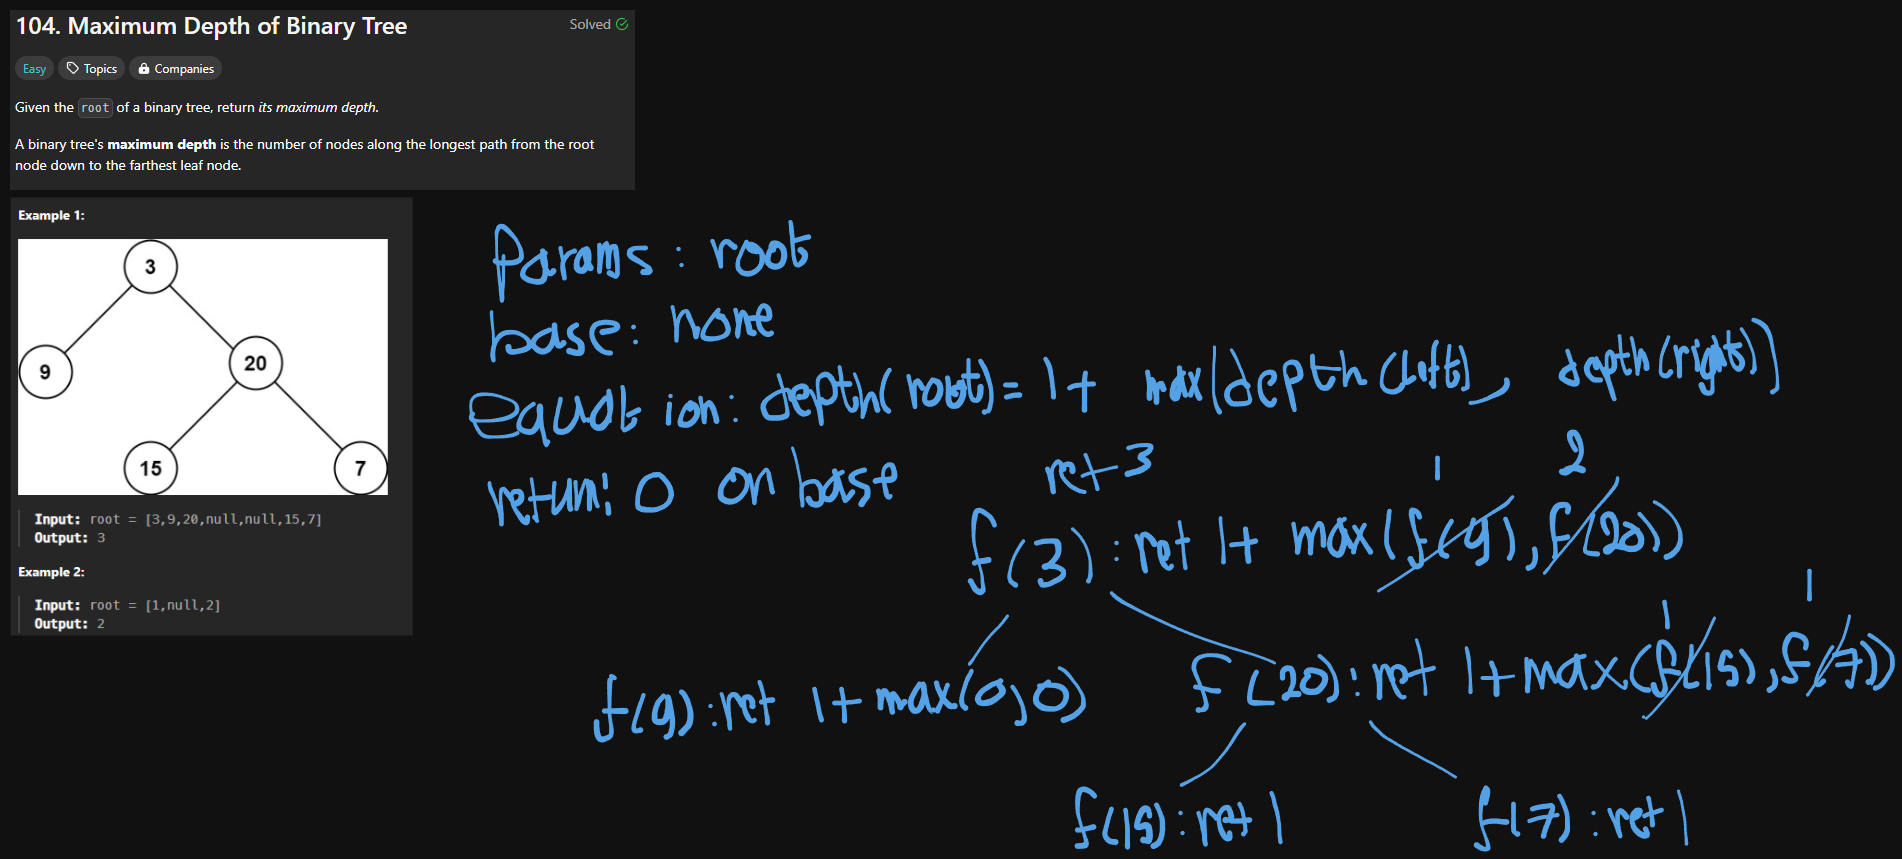 104. Maximum Depth of Binary Tree
Solved
Easy Topics Companies
Given the root of a binary tree, return its maximum depth.
A binary tree's maximum depth is the number of nodes along the longest path from the root
node down to the farthest leaf node.
Example 1:
3
9
20
15
7
Input: root = [3,9,20,null,null,15,7]
Output: 3
Example 2:
Input: root = [1,null,2]
Output: 2
Params: root
base: none
Equation: depth(root) = 1+ max(depth(left), depth(right))
return: 0 on base
ret 3
1 2
f(3): ret 1+ max(f(9), f(20))
1 1
f(9): ret 1+ max(0,0)
f(20): ret 1+max(f(15), f(7))
f(15): ret 1
f(7): ret 1